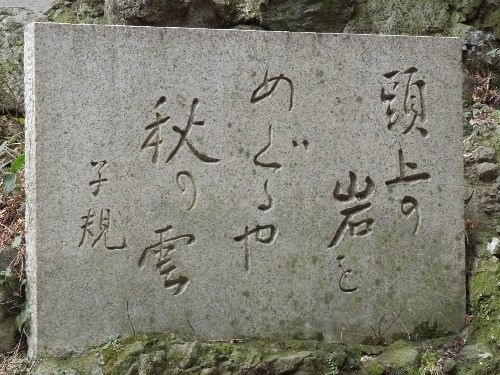 頭上の
岩を
めぐるや
秋の雲
子規